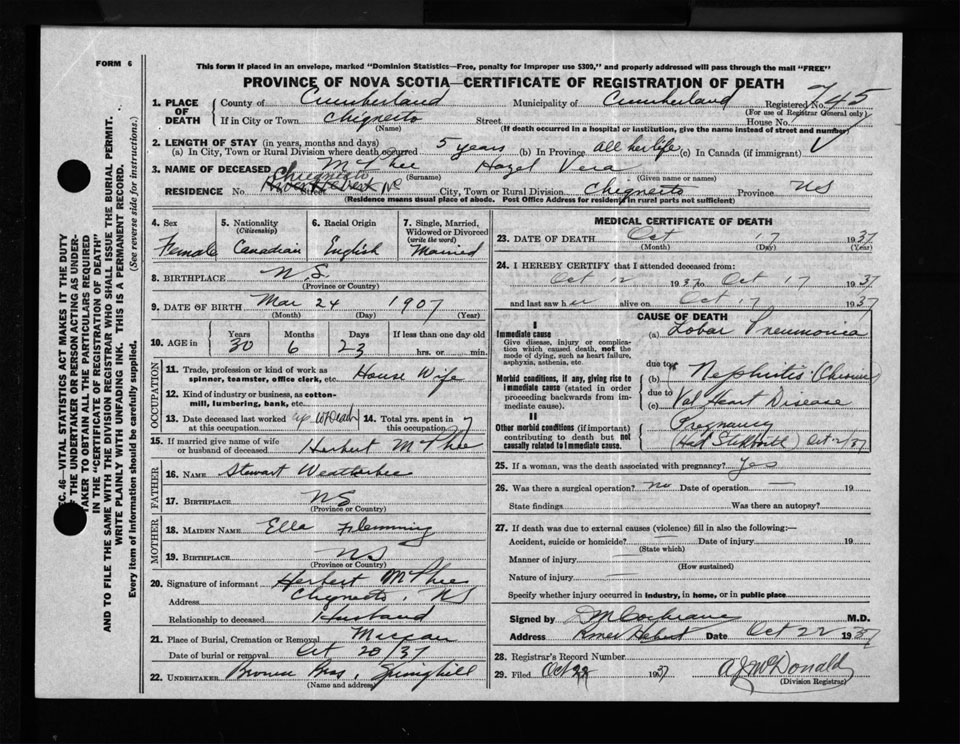 FORM 6
This form if placed in an envelope, marked "Dominion Statistics—Free, penalty for improper use $300," and properly addressed will pass through the mail "FREE"
PROVINCE OF NOVA SCOTIA—CERTIFICATE OF REGISTRATION OF DEATH
1. PLACE OF DEATH County of Cumberland Municipality of Cumberland Registered No. 745
(For use of Registrar General only)
If in City or Town Chignecto Street House No.
(Name) (If death occurred in a hospital or institution, give the name instead of street and number)
2. LENGTH OF STAY (in years, months and days)
(a) In City, Town or Rural Division where death occurred 5 years (b) In Province all her life (c) In Canada (if immigrant)
3. NAME OF DECEASED McPhee Hazel Vera
(Surname) (Given name or names)
Chignecto
RESIDENCE No. Street City, Town or Rural Division Chignecto Province NS
(Residence means usual place of abode. Post Office Address for residents in rural parts not sufficient)
4. Sex Female
5. Nationality (Citizenship) Canadian
6. Racial Origin English
7. Single, Married, Widowed or Divorced (write the word) Married
8. BIRTHPLACE N S.
(Province or Country)
9. DATE OF BIRTH Mar 24 1907
(Month) (Day) (Year)
10. AGE in Years 30 Months 6 Days 23 If less than one day old hrs. or min.
OCCUPATION
11. Trade, profession or kind of work as spinner, teamster, office clerk, etc. House Wife
12. Kind of industry or business, as cotton-mill, lumbering, bank, etc.
13. Date deceased last worked at this occupation
14. Total yrs. spent in this occupation 7
15. If married give name of wife or husband of deceased Herbert McPhee
FATHER
16. NAME Stewart Weatherbee
17. BIRTHPLACE NS
(Province or Country)
MOTHER
18. MAIDEN NAME Ella Flemming
19. BIRTHPLACE NS
(Province or Country)
20. Signature of informant Herbert McPhee
Address Chignecto, NS
Relationship to deceased Husband
21. Place of Burial, Cremation or Removal Maccan
Date of burial or removal Oct 20/37
22. UNDERTAKER Brown Bros, Springhill
(Name and address)
MEDICAL CERTIFICATE OF DEATH
23. DATE OF DEATH Oct 17 1937
(Month) (Day) (Year)
24. I HEREBY CERTIFY that I attended deceased from:
Oct 12 1937 to Oct 17 1937
and last saw her alive on Oct 17 1937
CAUSE OF DEATH
I
Immediate cause
Give disease, injury or complication which caused death, not the mode of dying, such as heart failure, asphyxia, asthenia, etc.
(a) Lobar Pneumonia
due to
Morbid conditions, if any, giving rise to immediate cause (stated in order proceeding backwards from immediate cause).
(b) Nephritis (Chronic)
due to
(c) Val Heart Disease
II
Other morbid conditions (if important) contributing to death but not causally related to immediate cause.
Pregnancy
Oct 12/37
25. If a woman, was the death associated with pregnancy? Yes
26. Was there a surgical operation? no Date of operation — 19
State findings Was there an autopsy?
27. If death was due to external causes (violence) fill in also the following:—
Accident, suicide or homicide? — Date of injury 19
(State which)
Manner of injury
(How sustained)
Nature of injury —
Specify whether injury occurred in industry, in home, or in public place
Signed by D M Cochrane M.D.
Address River Hebert Date Oct 22 1937
28. Registrar's Record Number
29. Filed Oct 1937 A J McDonald
(Division Registrar)
SEC. 46—VITAL STATISTICS ACT MAKES IT THE DUTY
OF THE UNDERTAKER OR PERSON ACTING AS UNDER-
TAKER TO OBTAIN ALL THE PARTICULARS REQUIRED
IN THE "CERTIFICATE OF REGISTRATION OF DEATH"
AND TO FILE THE SAME WITH THE DIVISION REGISTRAR WHO SHALL ISSUE THE BURIAL PERMIT.
WRITE PLAINLY WITH UNFADING INK. THIS IS A PERMANENT RECORD.
Every item of information should be carefully supplied. (See reverse side for instructions.)